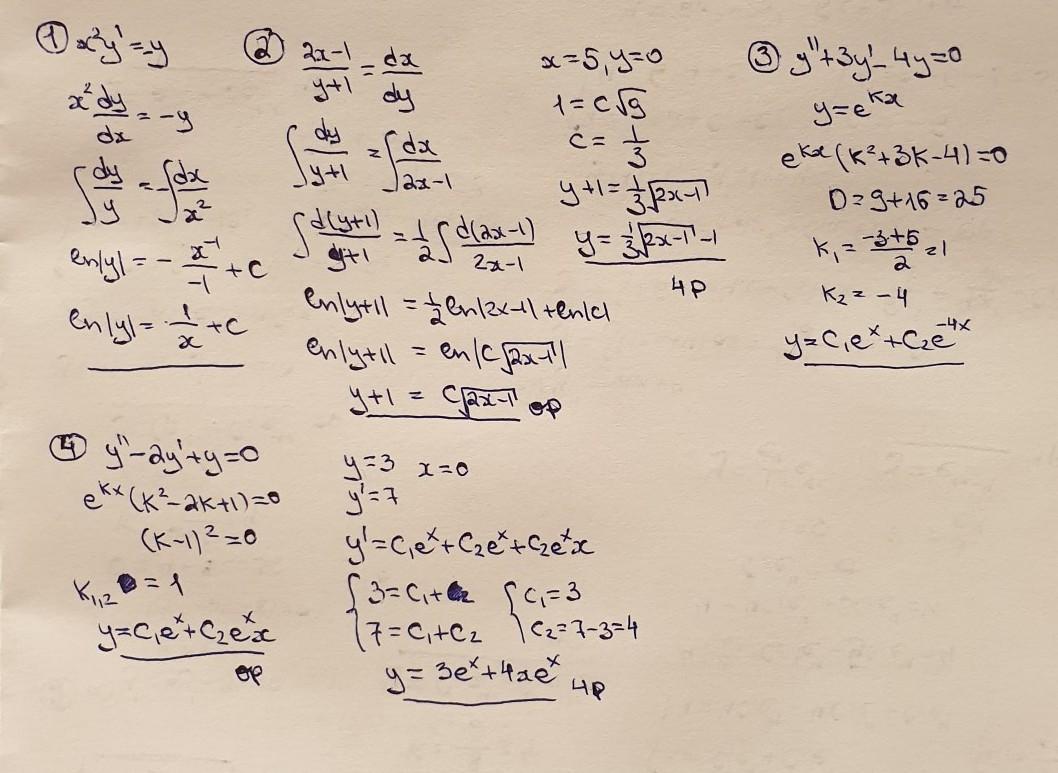 ① x²y' = -y
x² dy/dx = -y
∫ dy/y = -∫ dx/x²
ln|y| = - x⁻¹/-1 + C
ln|y| = 1/x + C
② (2x-1)/(y+1) = dx/dy
∫ dy/(y+1) = ∫ dx/(2x-1)
∫ d(y+1)/(y+1) = 1/2 ∫ d(2x-1)/(2x-1)
ln|y+1| = 1/2 ln|2x-1| + ln|C|
ln|y+1| = ln|C√(2x-1)|
y+1 = C√(2x-1) ор
x=5, y=0
1 = C√9
C = 1/3
y+1 = 1/3 √(2x-1)
y = 1/3 √(2x-1) - 1
чр
③ y''+3y'-4y=0
y = e^(kx)
e^(kx)(k²+3k-4)=0
D = 9+16 = 25
k₁ = (-3+5)/2 = 1
k₂ = -4
y = C₁e^x + C₂e^(-4x)
④ y''-2y'+y=0
e^(kx)(k²-2k+1)=0
(k-1)²=0
k₁,₂ = 1
y = C₁e^x + C₂e^x x
ор
y=3 x=0
y'=7
y' = C₁e^x + C₂e^x + C₂e^x x
{ 3 = C₁+ { C₁=3
7 = C₁+C₂ C₂=7-3=4
y = 3e^x + 4xe^x чр